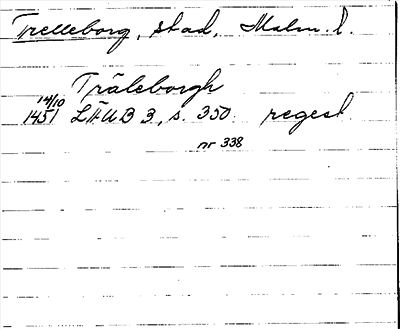 Trelleborg, stad, Malm. l.
Träleborgh
14/10
1451 LÄUB 3, s. 350. regest
nr 338